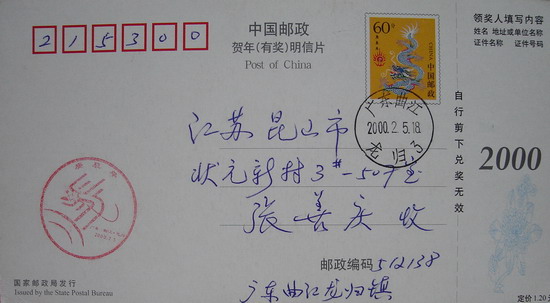 215300
中国邮政
贺年(有奖)明信片
Post of China
60分
CHINA
中国邮政
领奖人填写内容
姓名 地址或单位名称
证件名称 证件号码
广东曲江
2000.2.5.18
龙归3
江苏昆山市
状元新村3#-507室
张善庆收
自行剪下兑奖无效
2000
邮政编码 512138
广东曲江龙归镇
国家邮政局发行
Issued by the State Postal Bureau
定价1.20元